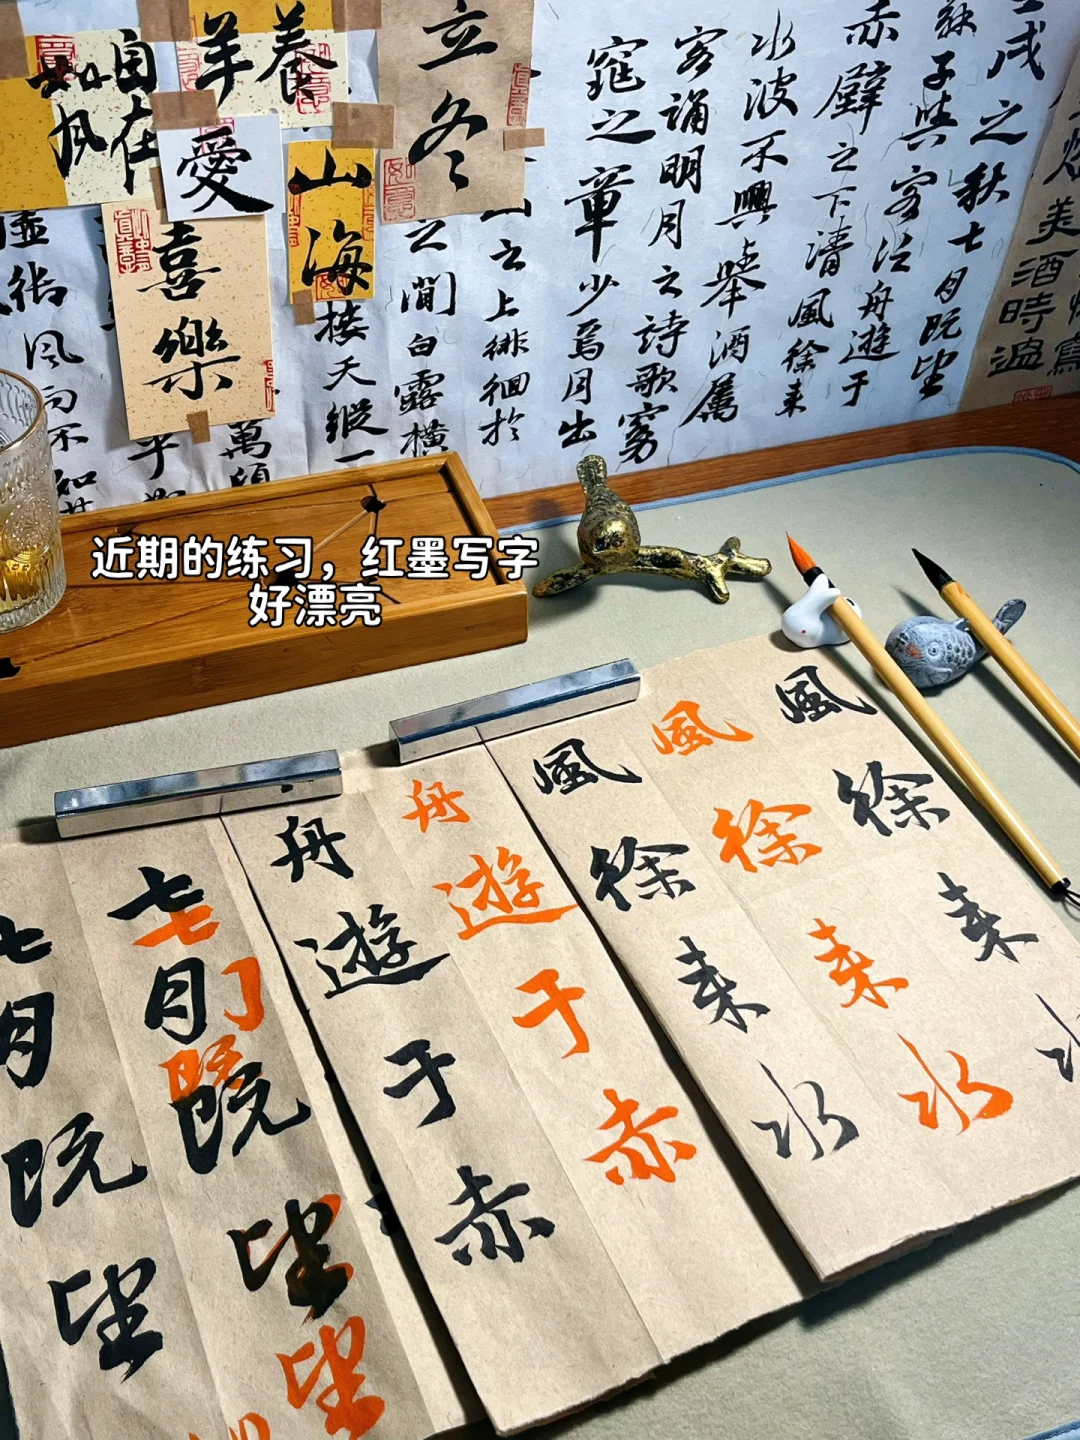 美酒時過
戌之秋七月既望
蘇子與客泛舟遊于
赤壁之下清風徐来
水波不興舉酒屬
客誦明月之詩歌窈
窕之章少焉月出
之上徘徊於
之間白露橫
接天縱一
萬頃
乎
虛御風而不如其
立冬
養羊
山海
愛
自在
如風
喜樂
近期的练习，红墨写字
好漂亮
風徐来
風徐来水
風徐来水
舟遊于赤
舟遊于赤
七月既望
七月既望
七月既望